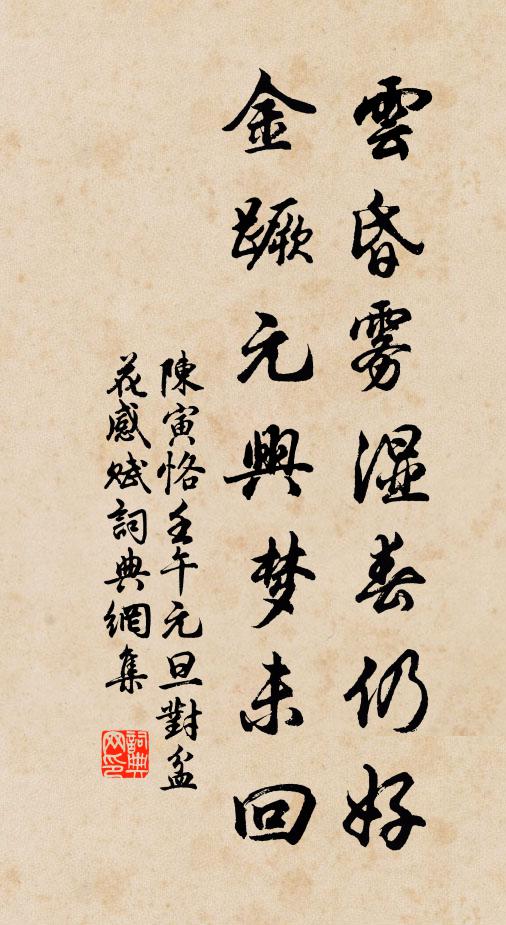 雲昏雾濕春仍好
金蹶元興梦未回
陳寅恪壬午元旦對盆
花感赋詞典網集
詞典
网印